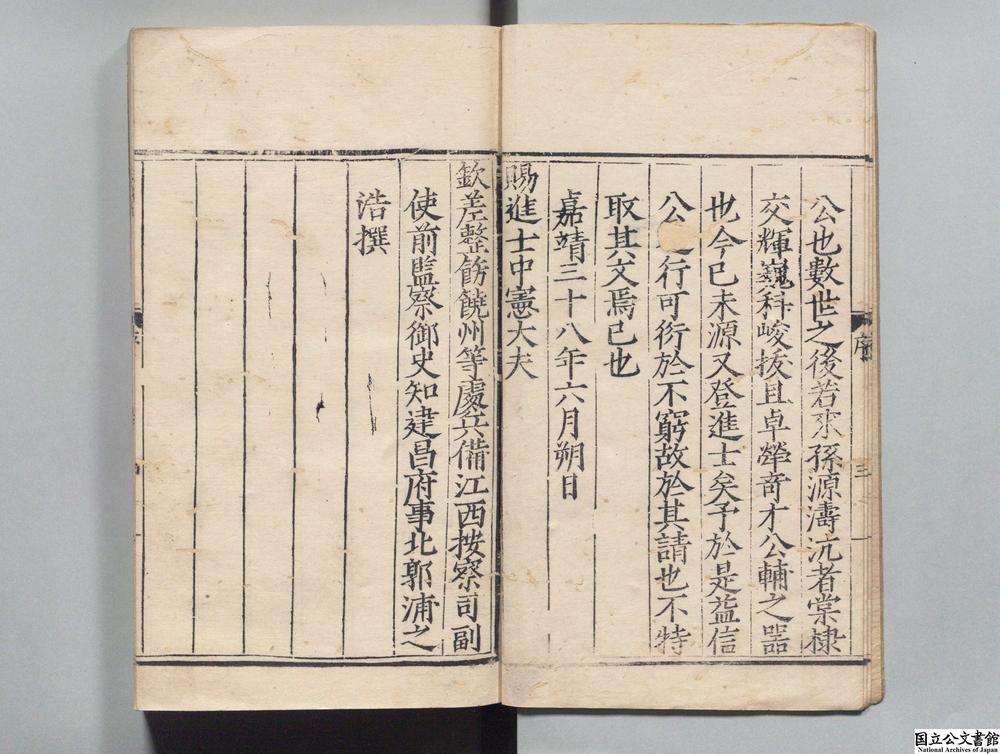 公也數世之後若來孫源濤沆者棠棣
交輝巍科峻拔且卓犖奇才公輔之器
也今已未源又登進士矣予於是益信
公之行可衍於不窮故於其請也不特
取其文焉已也
嘉靖三十八年六月朔日
賜進士中憲大夫
欽差整飭饒州等處兵備江西按察司副
使前監察御史知建昌府事北郭浦之
浩撰
序
三
国立公文書館
National Archives of Japan